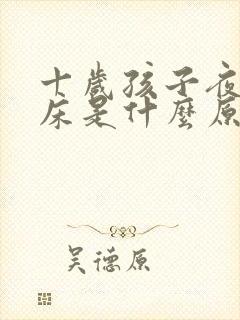 十歲孩子夜
床是什麼原
吴德原